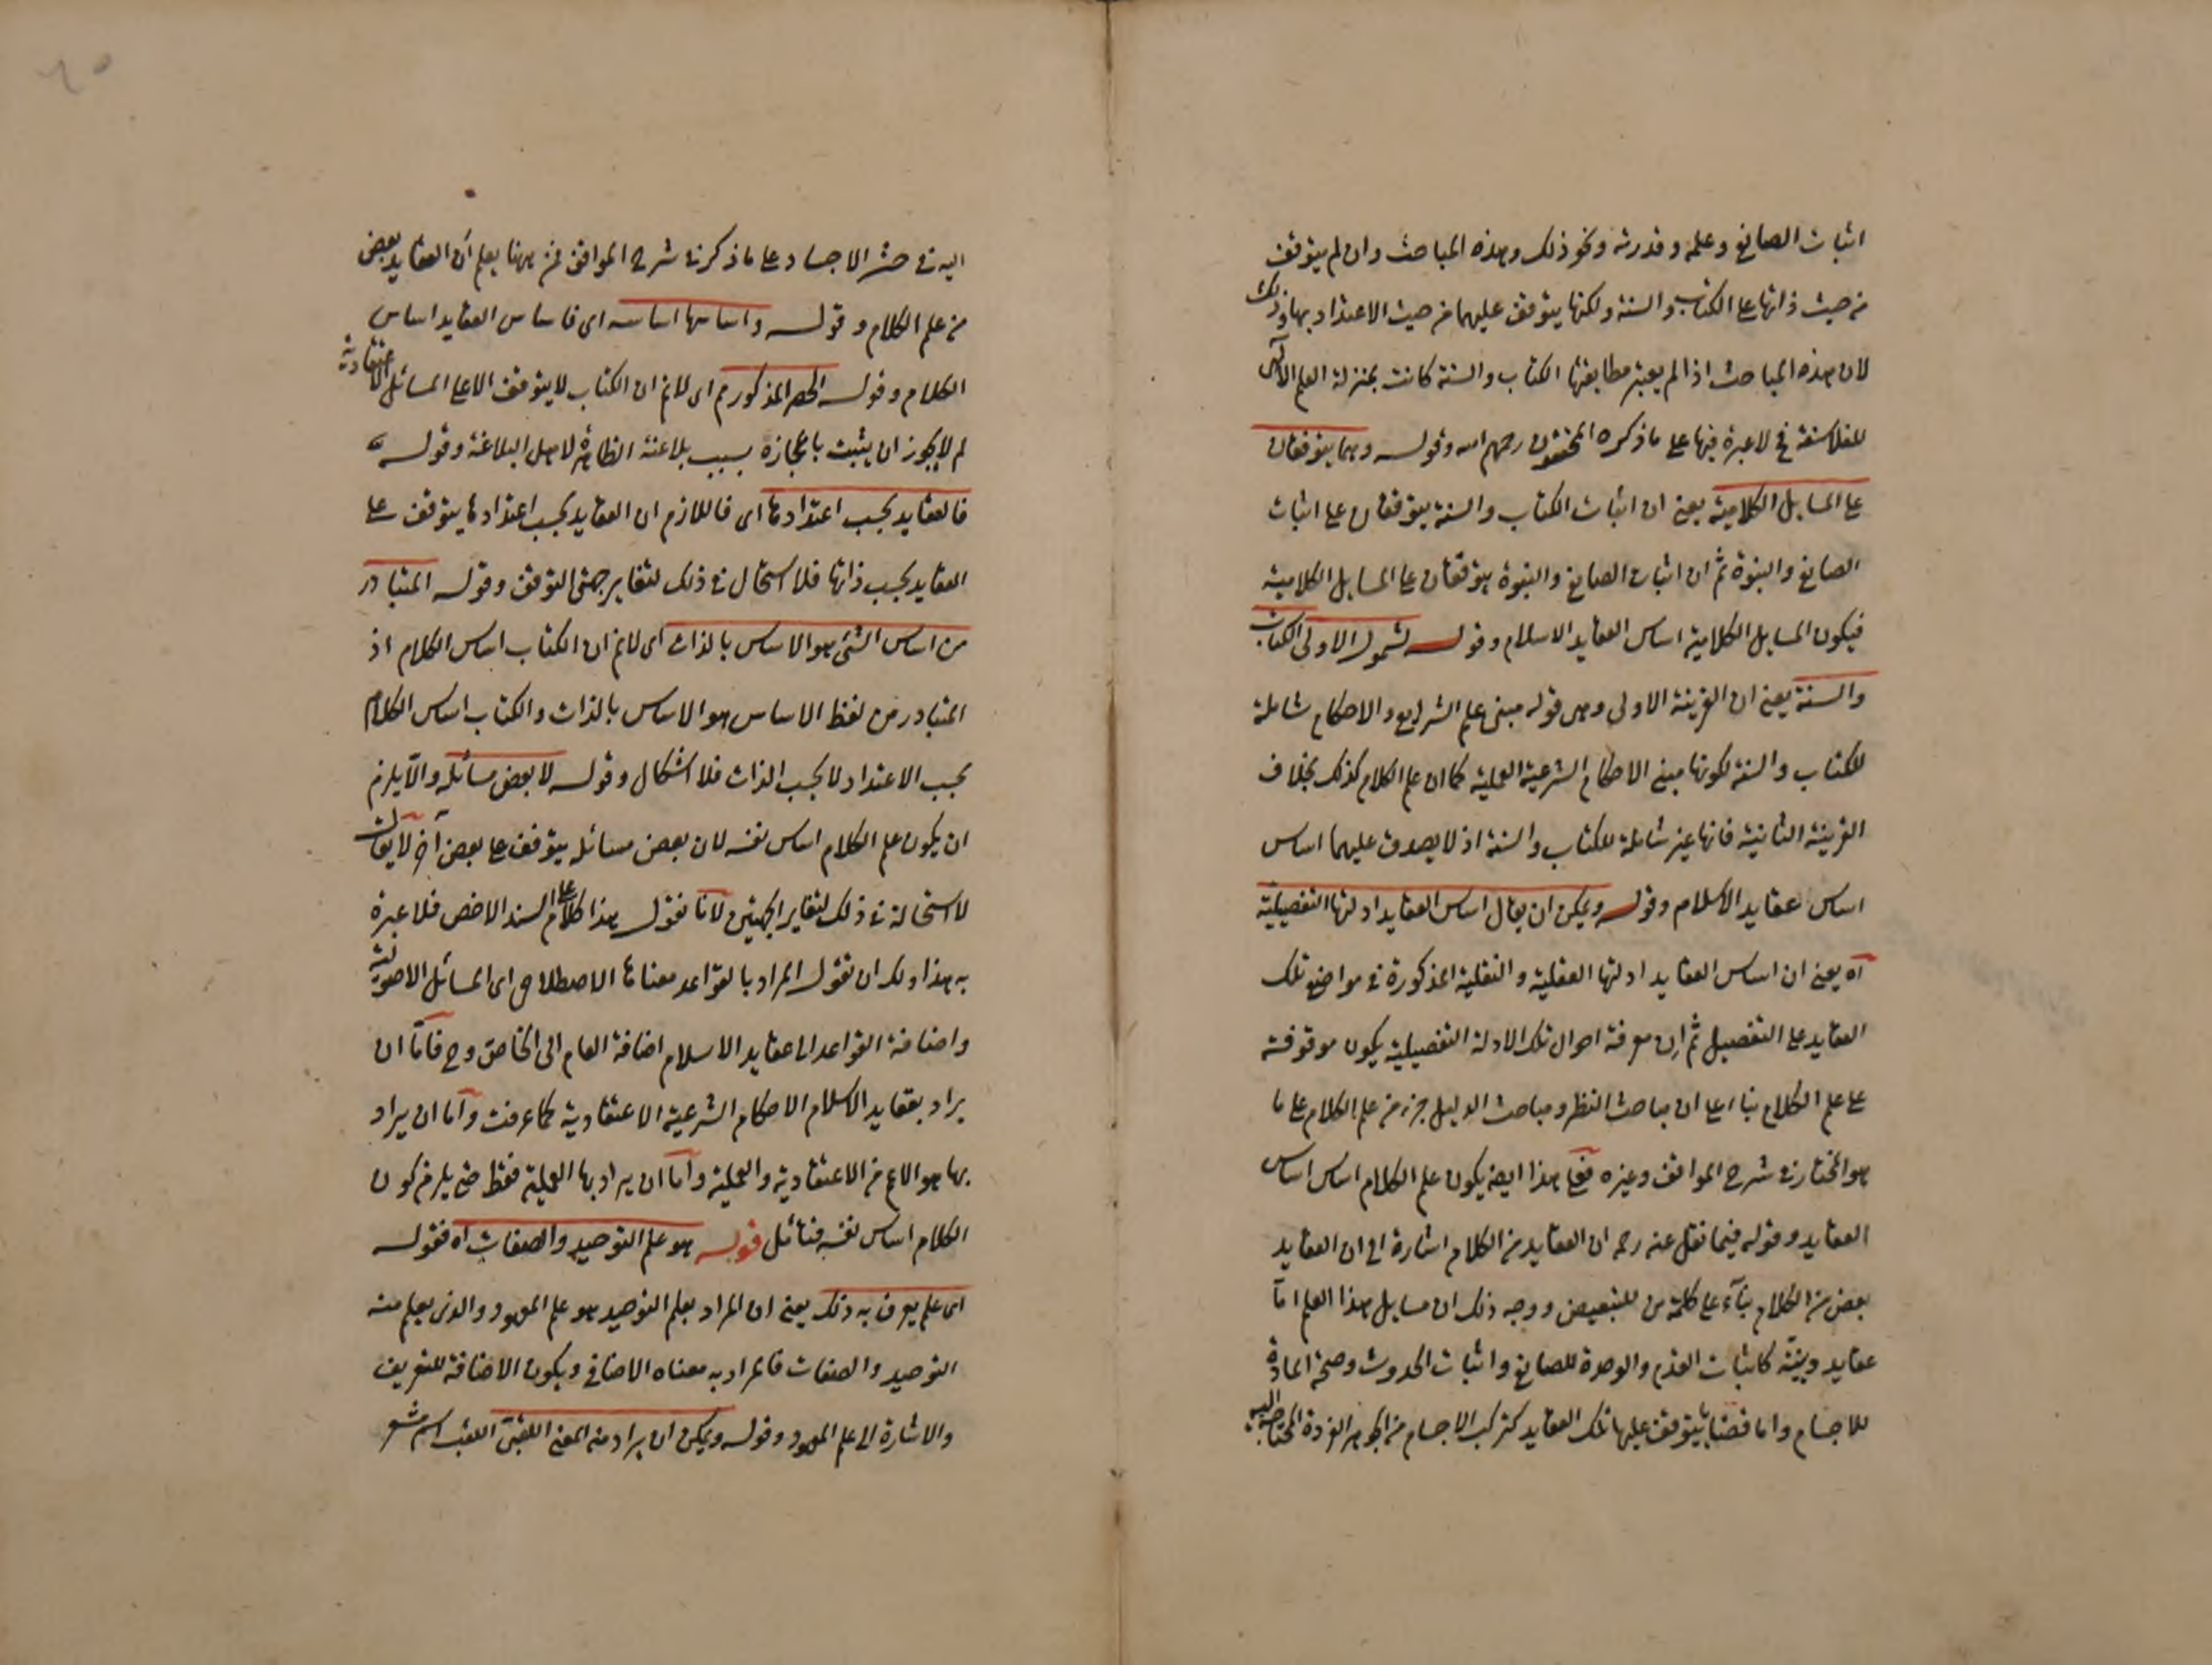 اثبات الصانع وعلمه وقدرته ونحو ذلك وهذه المباحث وان لم يتوقف
من حيث ذاتها على الكتاب والسنة ولكنها يتوقف عليهما من حيث الاعتداد بها وذلك
لان هذه المباحث اذا لم يعتبر مطابقتها الكتاب والسنة كانت بمنزلة العلم الآلهى
للفلاسفة فح لا عبرة فيها على ما ذكره المحققون رحمهم الله وقوله وهما يتوقفان
على المسايل الكلامية يعنى ان اثبات الكتاب والسنة يتوقفان على اثبات
الصانع والنبوة ثم ان اثبات الصانع والنبوة يتوقفان على المسايل الكلامية
فيكون المسايل الكلامية اساس العقايد الاسلام وقوله لشمول الاولى الكتاب
والسنة يعنى ان القرينة الاولى وهى قوله مبنى علم الشرايع والاحكام شاملة
للكتاب والسنة لكونها مبنى الاحكام الشرعية العملية كما ان علم الكلام كذلك بخلاف
القرينة الثانية فانها غير شاملة للكتاب والسنة اذ لا يصدق عليهما اساس
اساس عقايد الاسلام وقوله ويمكن ان يقال اساس العقايد ادلتها التفصيلية
اه يعنى ان اساس العقايد ادلتها العقلية والنقلية المذكورة فى مواضع تلك
العقايد على التفصيل ثم ان معرفة احوال تلك الادلة التفصيلية يكون موقوفة
على علم الكلام بناء على ان مباحث النظر ومباحث الدليل جزء من علم الكلام على ما
هو المختار فى شرح المواقف وغيره فعلى هذا ايضا يكون علم الكلام اساس اساس
العقايد وقوله فيما نقل عنه رحمه ان العقايد من الكلام اشارة الى ان العقايد
بعض من الكلام بناء على كلمة من للتبعيض ووجه ذلك ان مسايل هذا العلم اما
عقايد دينية كاثبات القدم والوحدة للصانع واثبات الحدوث وصحة اعادة
للاجسام واما قضايا يتوقف عليها تلك العقايد كتركب الاجسام من الجواهر الفردة المحتاج
اليه فى حشر الاجساد على ما ذكر فى شرح المواقف فمن ههنا يعلم ان العقايد بعض
من علم الكلام وقوله واساسها اساسه اى فاساس العقايد اساس
الكلام وقوله الحصر المذكور م اى لانم ان الكتاب لا يتوقف الا على المسائل الاعتقادية
لم لا يجوز ان يثبت باعجازه بسبب بلاغته الظاهرة لاهل البلاغة وقوله
فالعقايد بحسب اعتدادها اى فاللازم ان العقايد بحسب اعتدادها يتوقف على
العقايد بحسب ذاتها فلا استحال فى ذلك لتغاير جهتى التوقف وقوله المتبادر
من اساس الشئ هو الاساس بالذات اى لانم ان الكتاب اساس الكلام اذ
المتبادر من لفظ الاساس هو الاساس بالذات والكتاب اساس الكلام
بحسب الاعتداد لا بحسب الذات فلا اشكال وقوله لا بعض مسائله والا يلزم
ان يكون علم الكلام اساس نفسه لان بعض مسائله يتوقف على بعض آخر لا يقال
لا استحالة فى ذلك لتغاير الجهتين لانا نقول هذا كلام على السند الاخص فلا عبرة
به هذا ولك ان تقول المراد بالقواعد معناها الاصطلاحى اى المسائل الاصولية
واضافة القواعد الى عقايد الاسلام اضافة العام الى الخاص وح فاما ان
يراد بعقايد الاسلام الاحكام الشرعية الاعتقادية كما عرفت واما ان يراد
بها هو الاعم من الاعتقادية والعملية واما ان يراد بها العملية فقط حتى يلزم كون
الكلام اساس نفسه فتأمل قوله هو علم التوحيد والصفات اه فقوله
اى علم يعرف به ذلك يعنى ان المراد بعلم التوحيد هو علم المعهود والذى يعلم منه
التوحيد والصفات فالمراد به معناه الاضافى ويكون الاضافة للتعريف
والاشارة الى علم المعهود وقوله ويمكن ان يراد منه المعنى اللقبى اللقب اسم مشعر